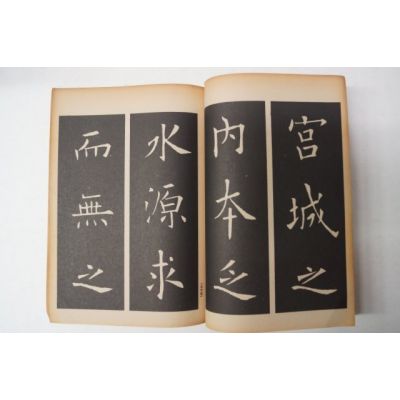 宮城之
内本乏
水源求
而無之